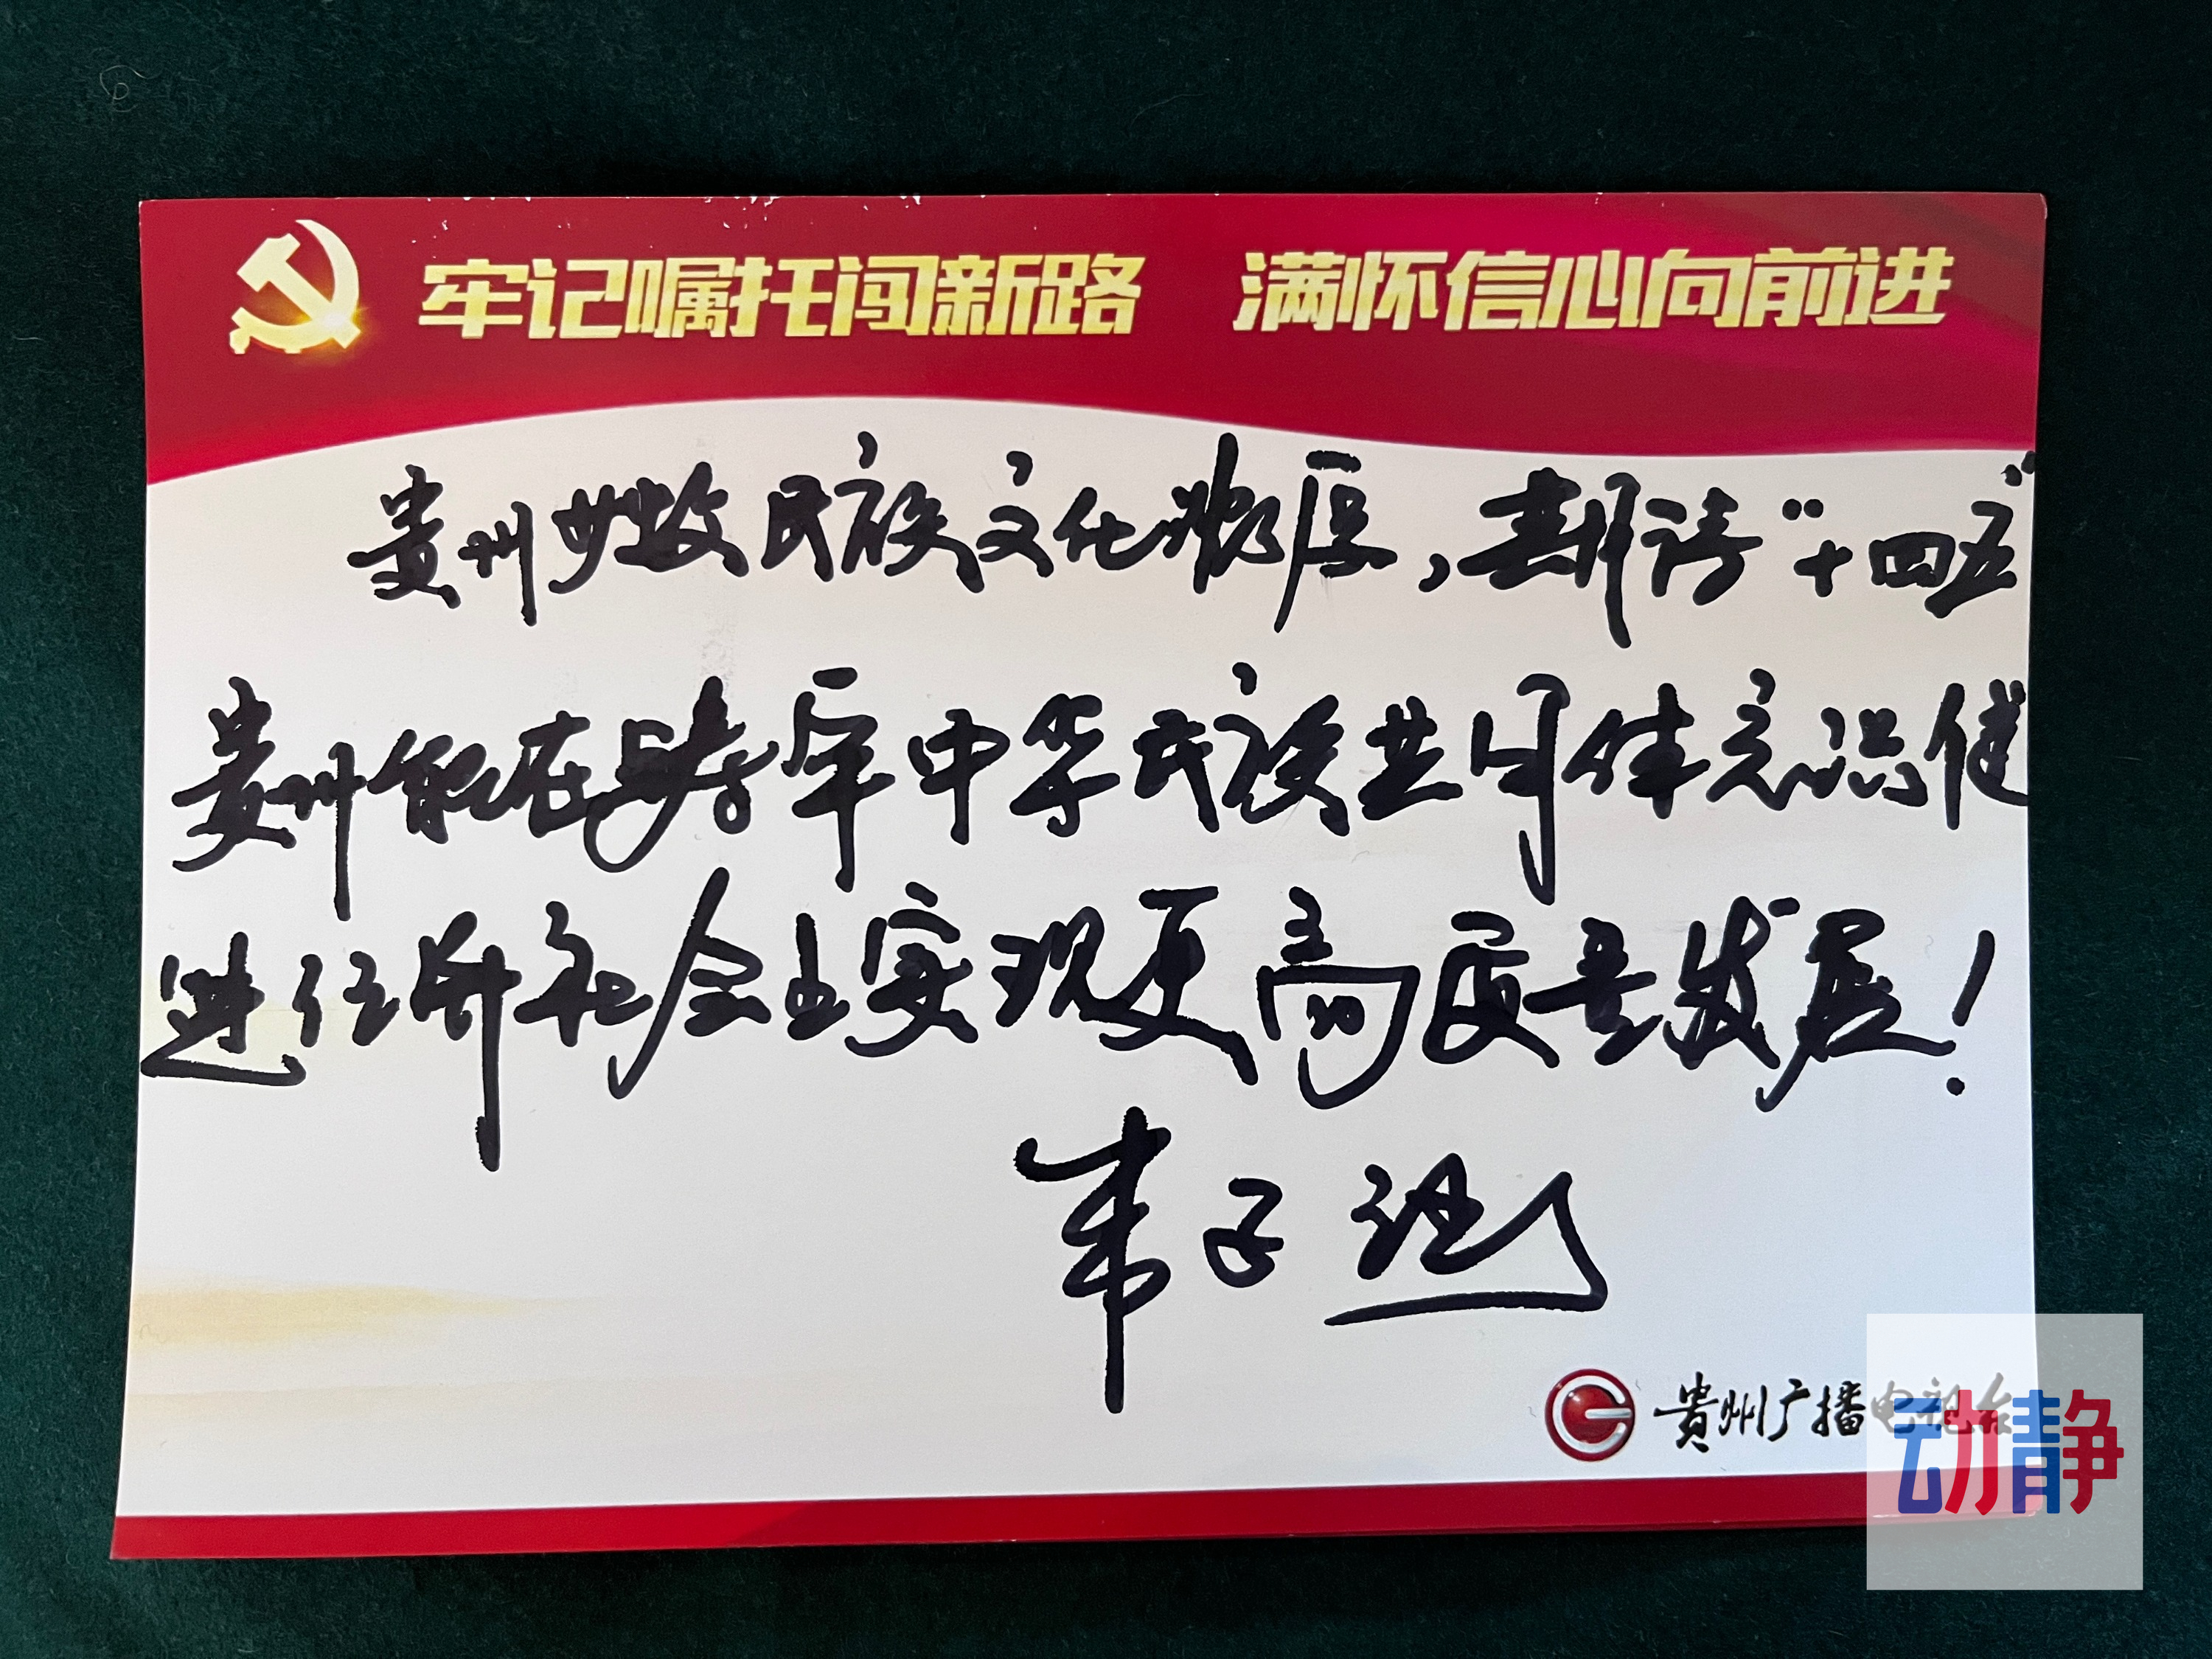 牢记嘱托闯新路 满怀信心向前进
贵州少数民族文化浓厚，期待“十四五”
贵州能在铸牢中华民族共同体意识促
进经济社会上实现更高质量发展！
贵州广播电视台
动静